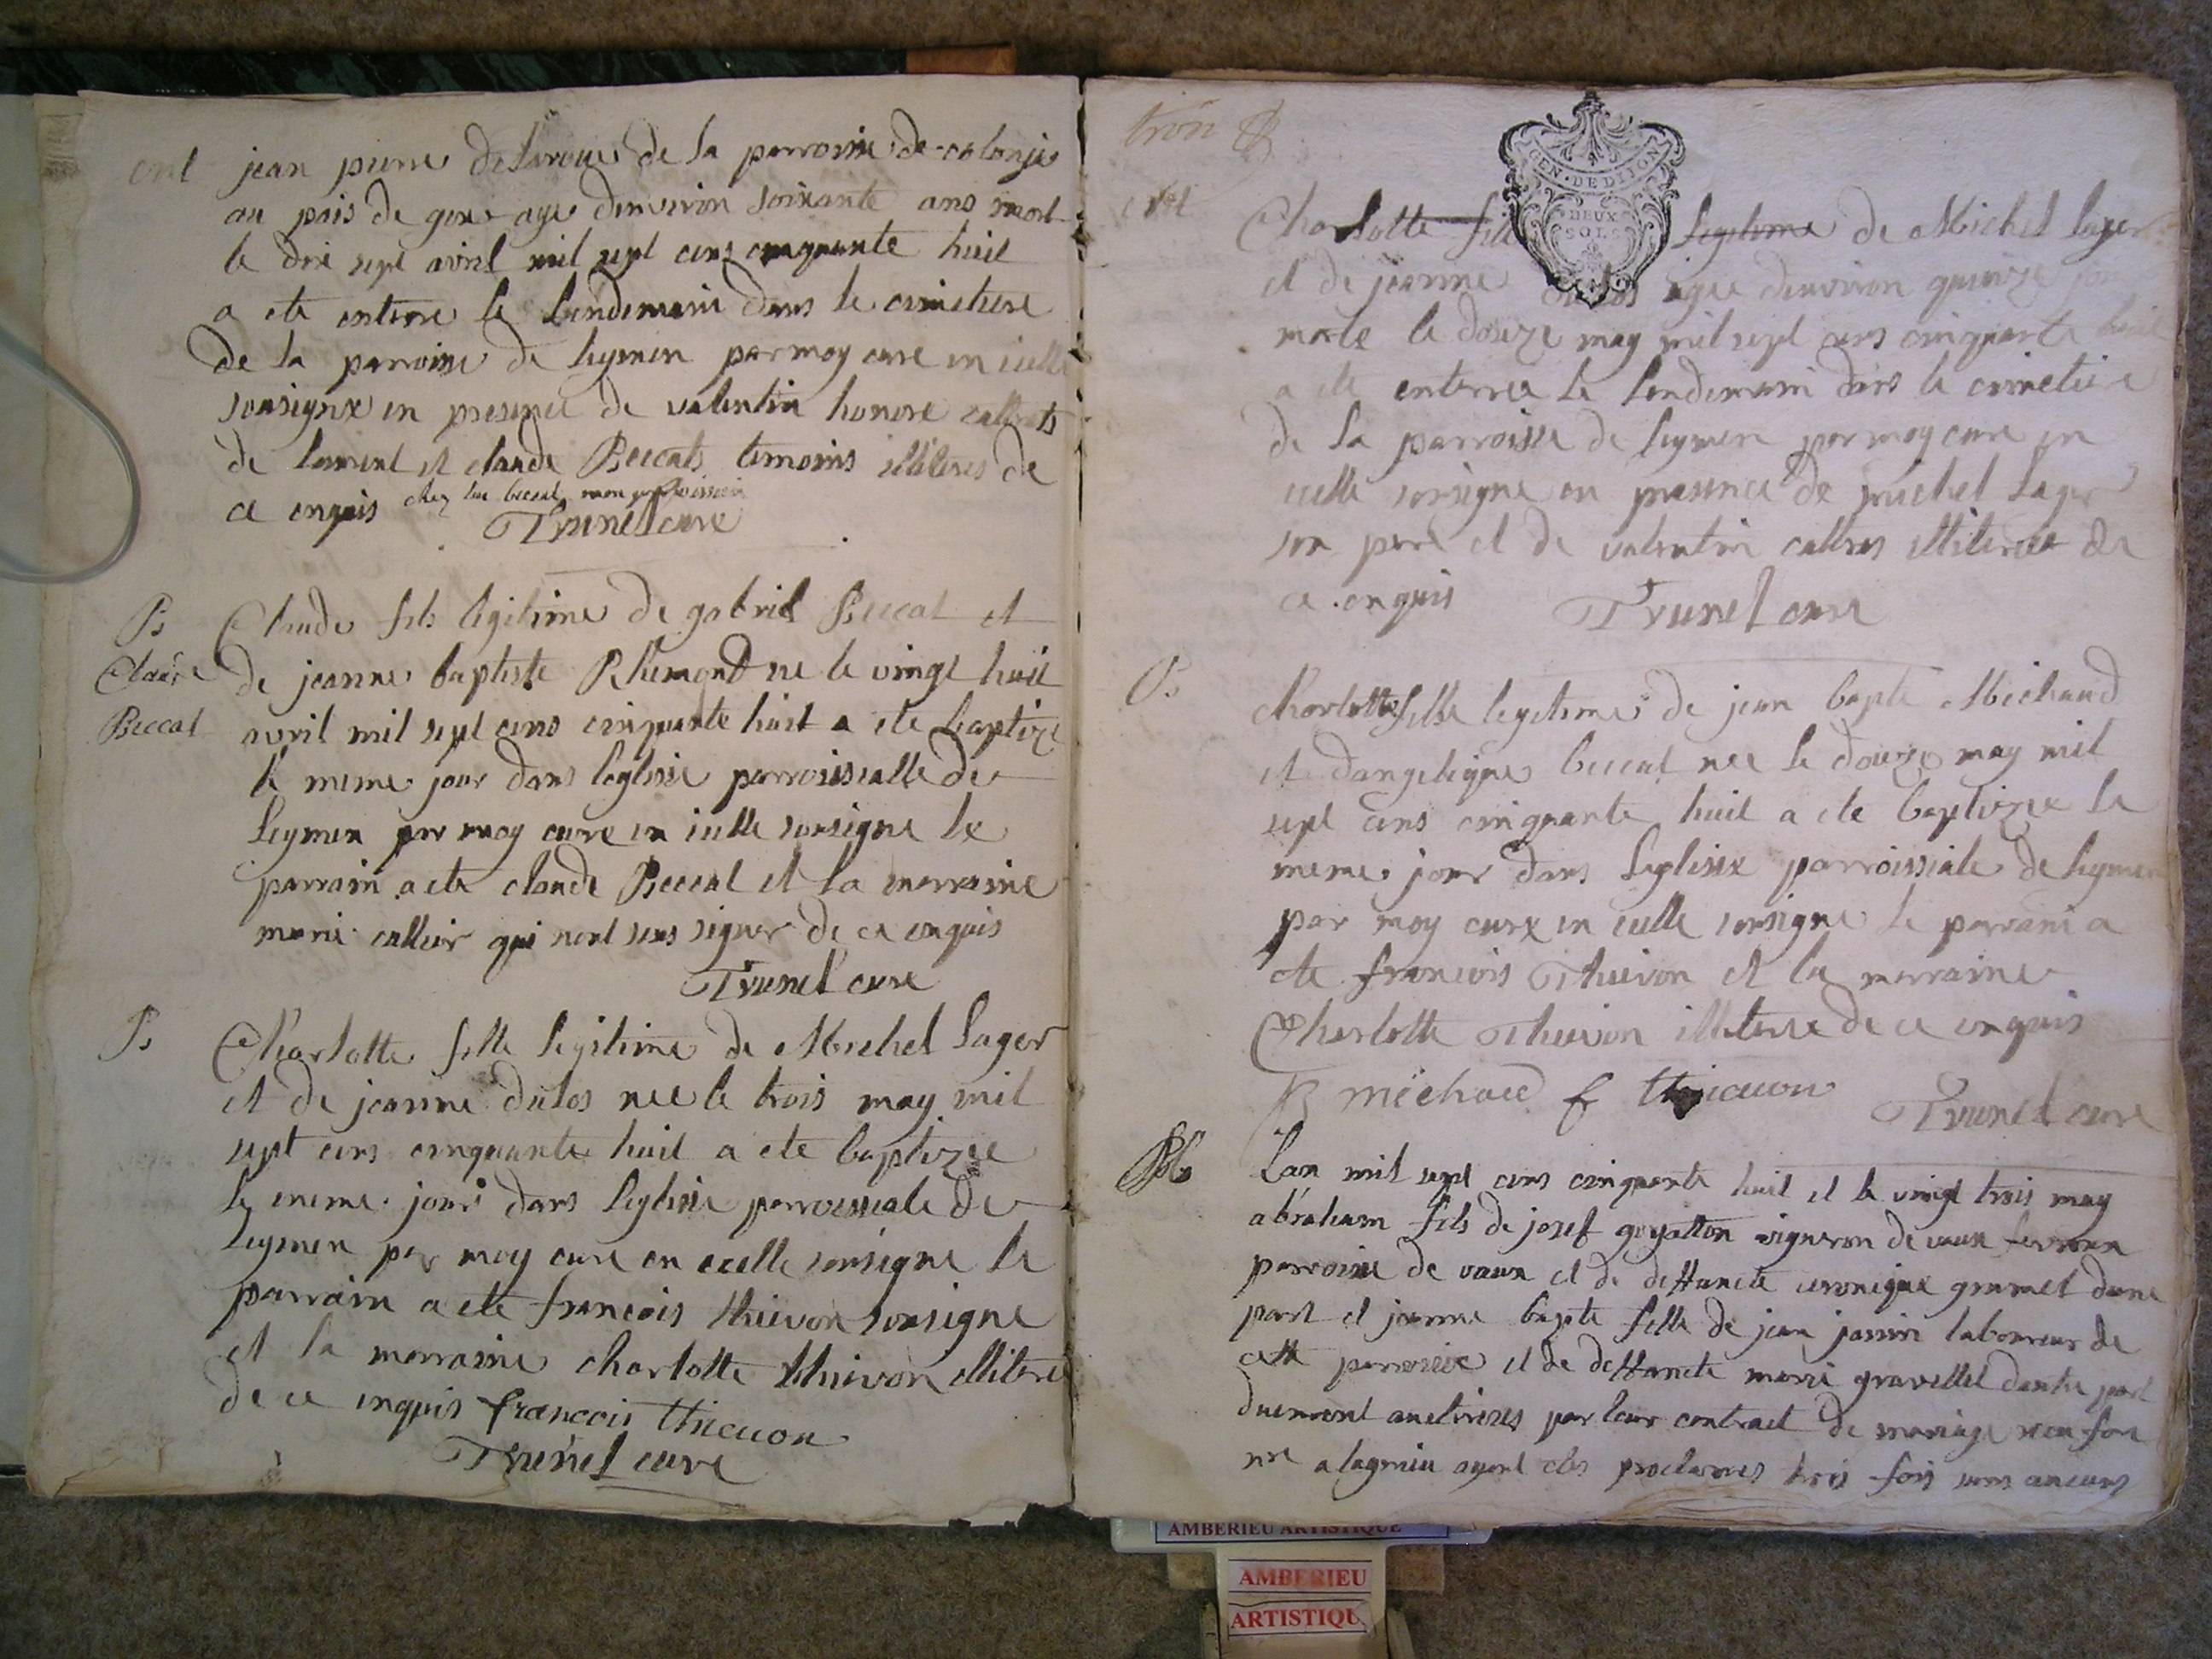 ent jean pierre delaroue de la parroisse de colonje
au païs de gex age denviron soixante ans mort
le dix sept avril mil sept cens cinquante huit
a ete enterre le lendemain dans le cimetiere
de la parroisse de leymen par moy cure en icelle
sousigne en presence de valentin honore
de et claude Beccat temoins illiteres de
ce enquis chez
Trunel cure
B Claude fils legitime de gabriel Beccat et
Claude de jeanne baptiste Rhemond ne le vingt huit
Beccat avril mil sept cens cinquante huit a ete baptize
le meme jour dans leglisse parroissialle de
leymen par moy cure en icelle sousigne le
parrain a ete claude Beccat et la marraine
marie qui nont sceu signer de ce enquis
Trunel cure
B Charlotte fille legitime de Michel lager
et de jeanne duclos nee le trois may mil
sept cens cinquante huit a ete baptizee
le meme jour dans leglisse parroissiale de
leymen par moy cure en icelle sousigne le
parrain a ete francois thievon sousigne
et la marraine charlotte thievon illitere
de ce enquis francois thievon
Trunel cure
GEN. DE DIJON
DEUX
SOLS
ent Charlotte fille legitime de Michel lager
et de jeanne duclos agee denviron quinze
morte le douze may mil sept cens cinquante huit
a ete enterree le lendemain dans le cimetiere
de la parroisse de leymen par moy cure en
icelle sousigne en presence de michel lager
son pere et de valentin illiteres de
ce enquis Trunel cure
B charlotte fille legitime de jean bapte Michaud
et dangelique beccat nee le douze may mil
sept cens cinquante huit a ete baptizee le
meme jour dans leglisse parroissiale de leymen
par moy cure en icelle sousigne le parrain a
ete francois Thievon et la marraine
Charlotte Thievon illiteree de ce enquis
B michaud f thievon Trunel cure
Lan mil sept cens cinquante huit et le vingt trois may
abraham fils de josef goyatton vigneron de vaux
parroisse de vaux et de deffuncte veronique grumet dune
part et jeanne bapte fille de jean janin laboureur de
cette parroisse et de deffuncte marie gravellet dautre part
duement auctorizes par leur contract de mariage
nre a lagnieu ayant etes proclames trois fois sans aucuns
AMBERIEU ARTISTIQUE
AMBERIEU
ARTISTIQU